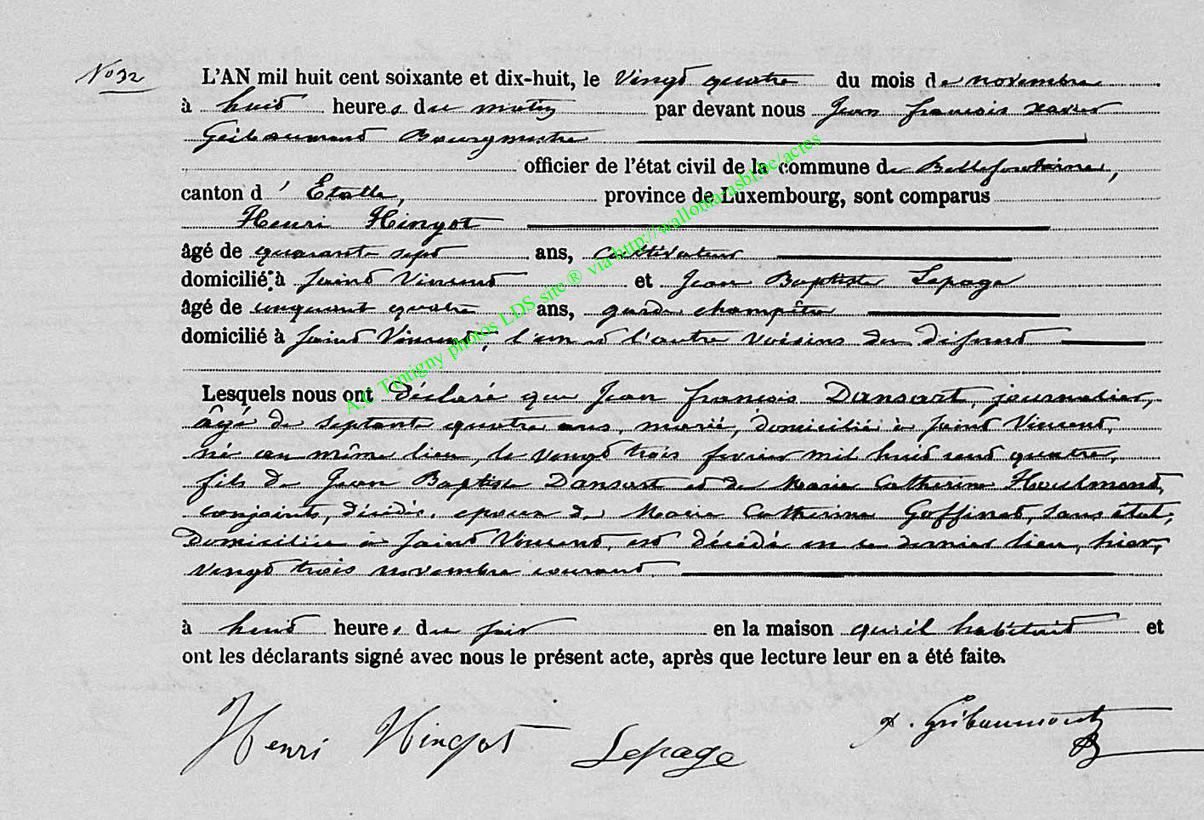 No 32
L'AN mil huit cent soixante et dix-huit, le Vingt quatre du mois de novembre
à huit heures du matin par devant nous Jean françois Xavier
Gribaumont Bourgmestre
officier de l'état civil de la commune de Bellefontaine,
canton d'Étalle, province de Luxembourg, sont comparus
Henri Hingot
âgé de quarante sept ans, cultivateur
domicilié à Saint Vincent et Jean Baptiste Lepage
âgé de cinquante quatre ans, garde champêtre
domicilié à Saint Vincent, l'un et l'autre voisins du défunt
Lesquels nous ont déclaré que Jean françois Dansart, journalier,
âgé de septante quatre ans, marié, domicilié à Saint Vincent,
né au même lieu, le vingt trois fevrier mil huit cent quatre,
fils de Jean Baptiste Dansart et de Marie Catherine Houlmond,
conjoints, décédés, epoux de Marie Catherine Goffinet, sans état,
domiciliée à Saint Vincent, est décédé en ce dernier lieu, hier,
vingt trois novembre courant
à huit heures du soir en la maison qu'il habitait et
ont les déclarants signé avec nous le présent acte, après que lecture leur en a été faite.
Henri Hingot Lepage X. Gribaumont
A.C Tintigny photos LDS site ® via http://wallonia.asbl.be/actes